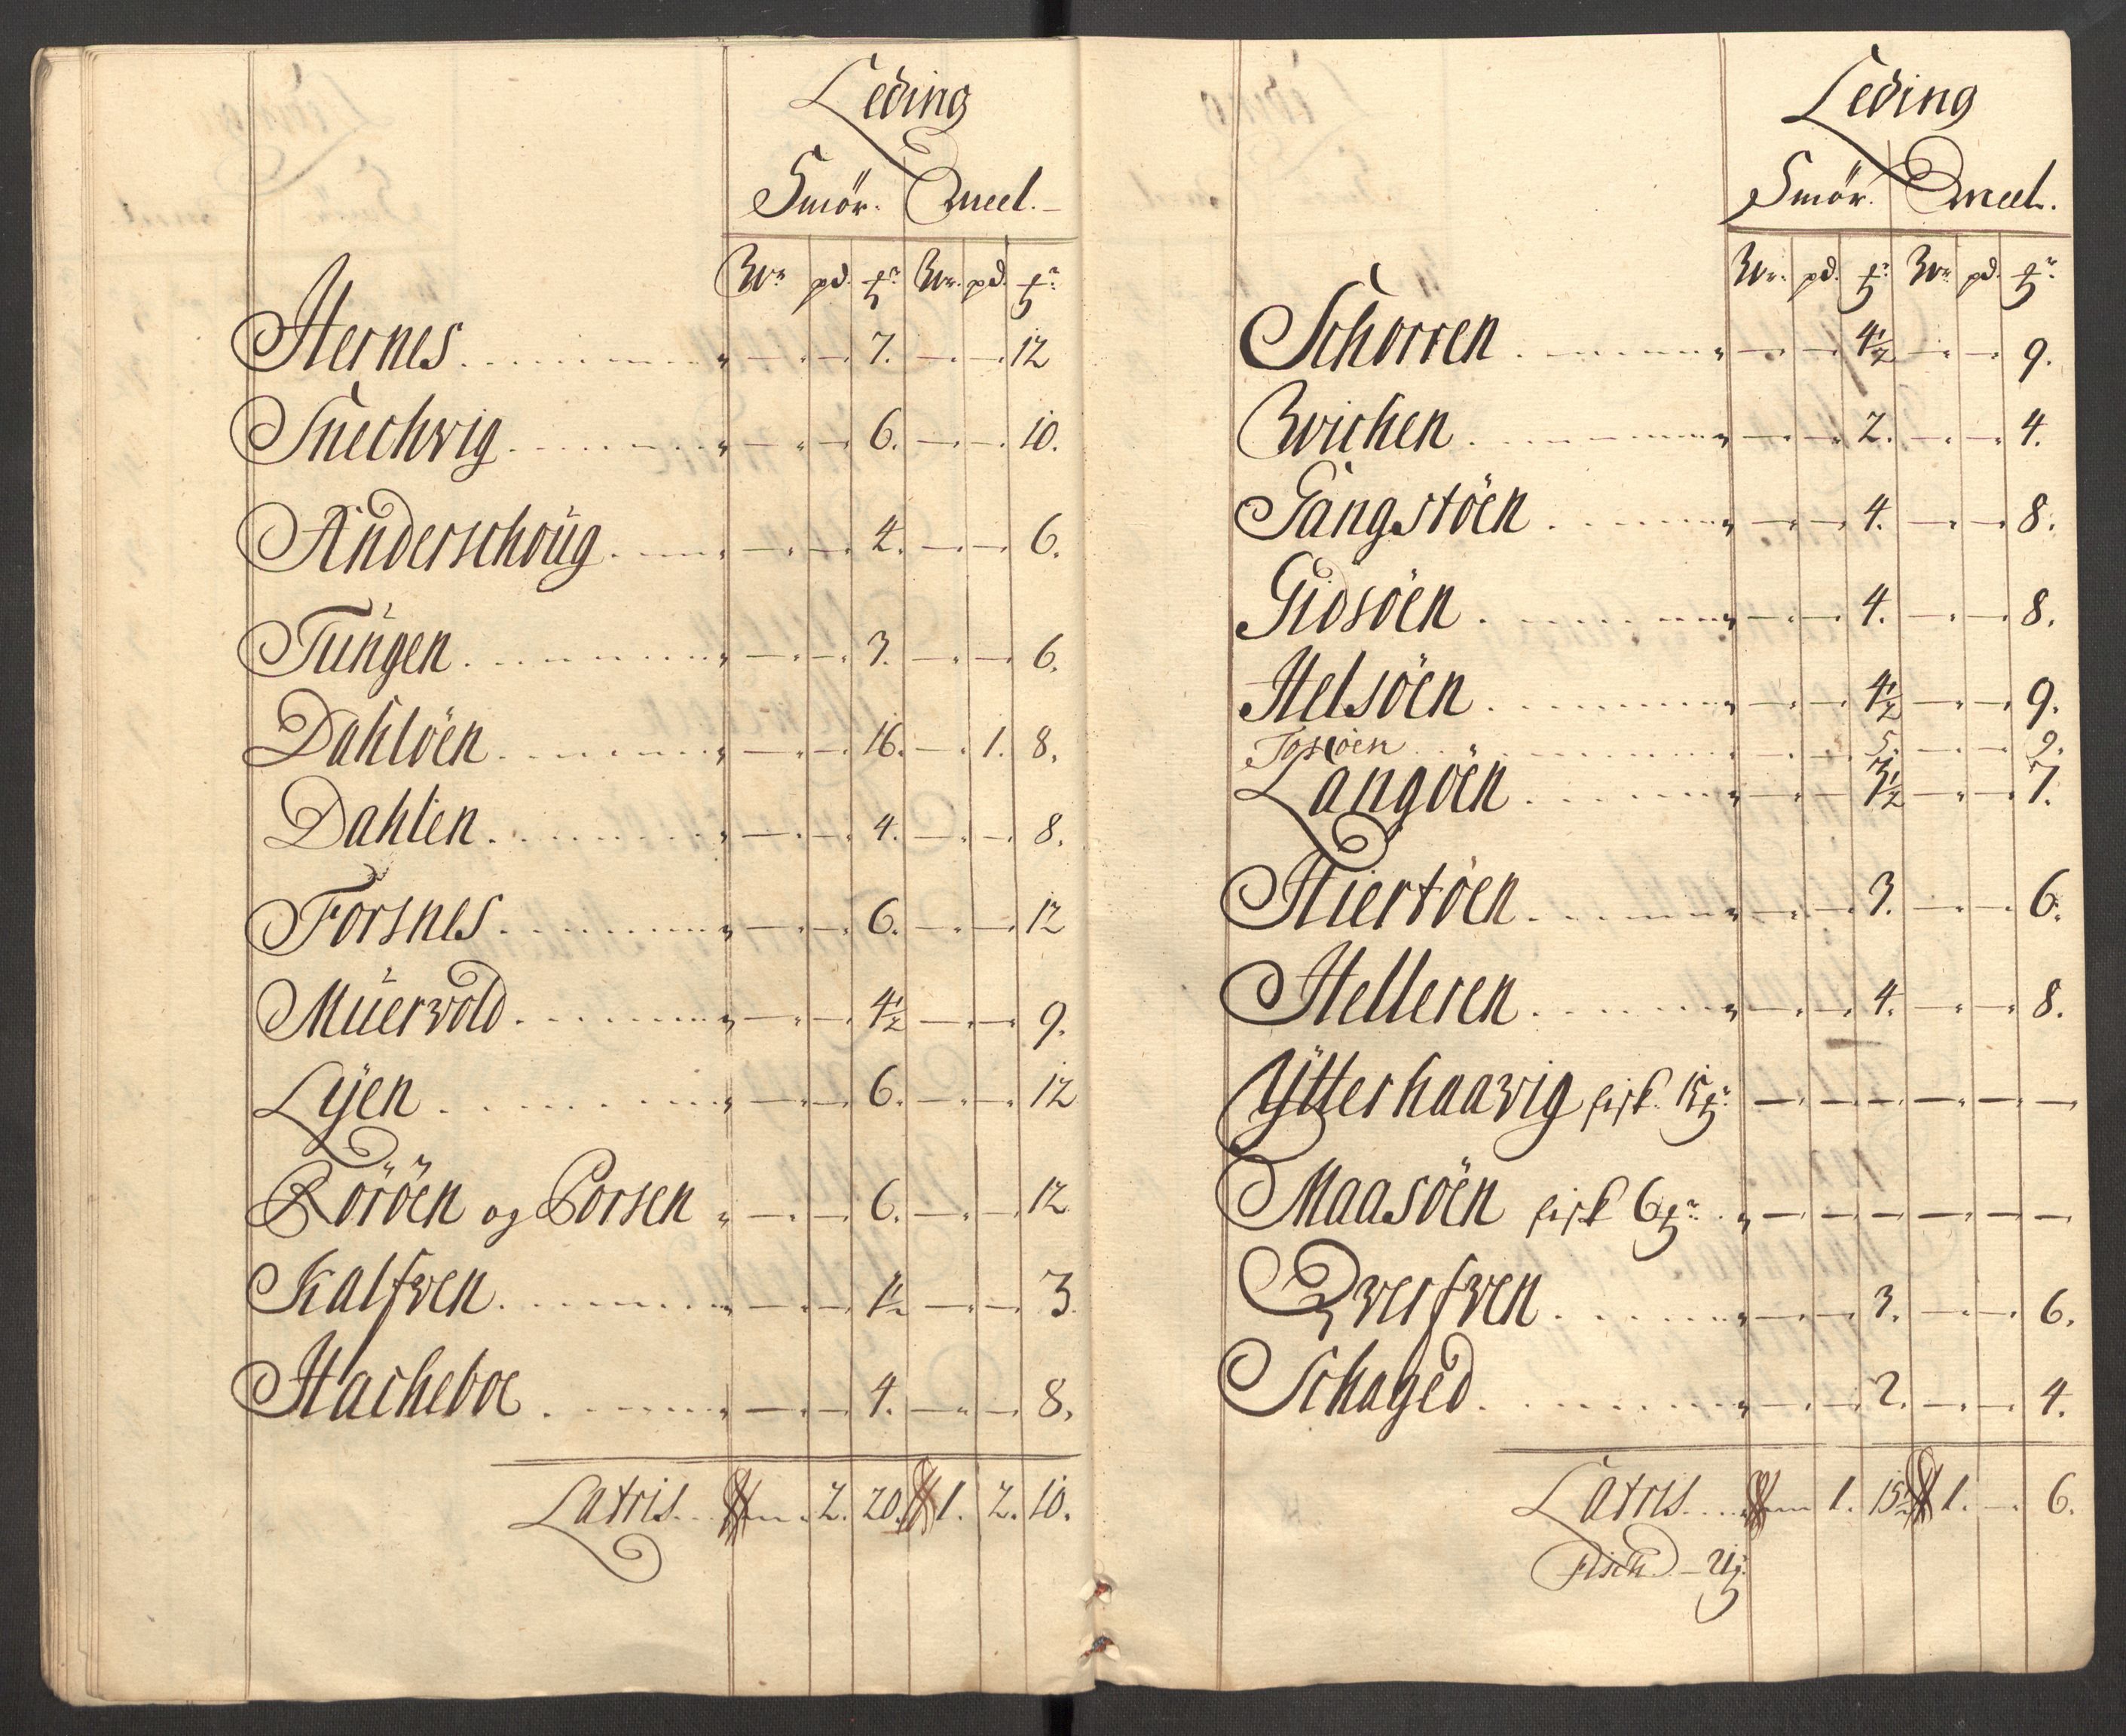 Leding
Smör. Meel.
Wr pd. ℔r Wr. pd. ℔r
Hernes 7. 12
Snechvig 6. 10.
Anderschoug 4. 6.
Tungen 3. 6.
Dahlöen 16. 1. 8.
Dahlen 4. 8.
Forsnes 6. 12
Muervold 4½ 9.
Lyen 6. 12
Röröen og Porsen 6. 12
Kalfven 1½ 3
Hacheboe 4. 8.
Latris 2. 20. 1. 2. 10.
Leding
Smör. Meel.
Wr. pd. ℔r Wr pd. ℔r
Schorren 4½ 9.
Wichen 2. 4.
Gangstöen 4. 8.
Gidsöen 4. 8.
Helsöen 4½ 9.
Josöen 5. 9.
Langöen 3½ 7.
Hiertöen 3. 6.
Helleren 4. 8.
Ytterhaavig fisk 15 ℔r
Maasöen fisk 6 ℔r
Qverfven 3. 6.
Schaged 2. 4.
Latris 1. 15½ 1. 6.
Fisch 21 ℔r